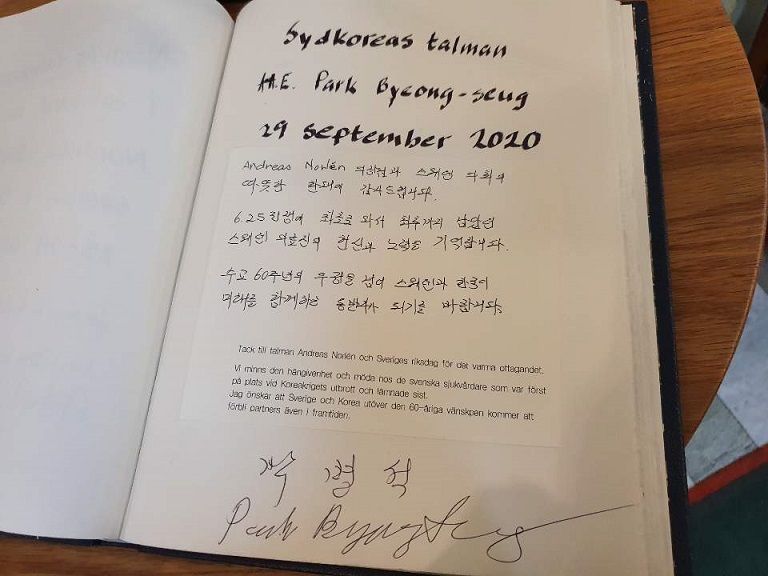 Sydkoreas talman
H.E. Park Byeong-seug
29 september 2020
Andreas Norlén 의장님과 스웨덴 의회의
따뜻한 환대에 감사드립니다.
6.25 전쟁에 최초로 와서 최후까지 남았던
스웨덴 의료진의 헌신과 노력을 기억합니다.
수교 60주년의 우정을 넘어 스웨덴과 한국이
미래를 함께하는 동반자가 되기를 바랍니다.
Tack till talman Andreas Norlén och Sveriges riksdag för det varma ottagandet.
Vi minns den hängivenhet och möda hos de svenska sjukvårdare som var först
på plats vid Koreakrigets utbrott och lämnade sist.
Jag önskar att Sverige och Korea utöver den 60-åriga vänskpen kommer att
förbli partners även i framtiden.
박 병 석
Park Byeong Seug